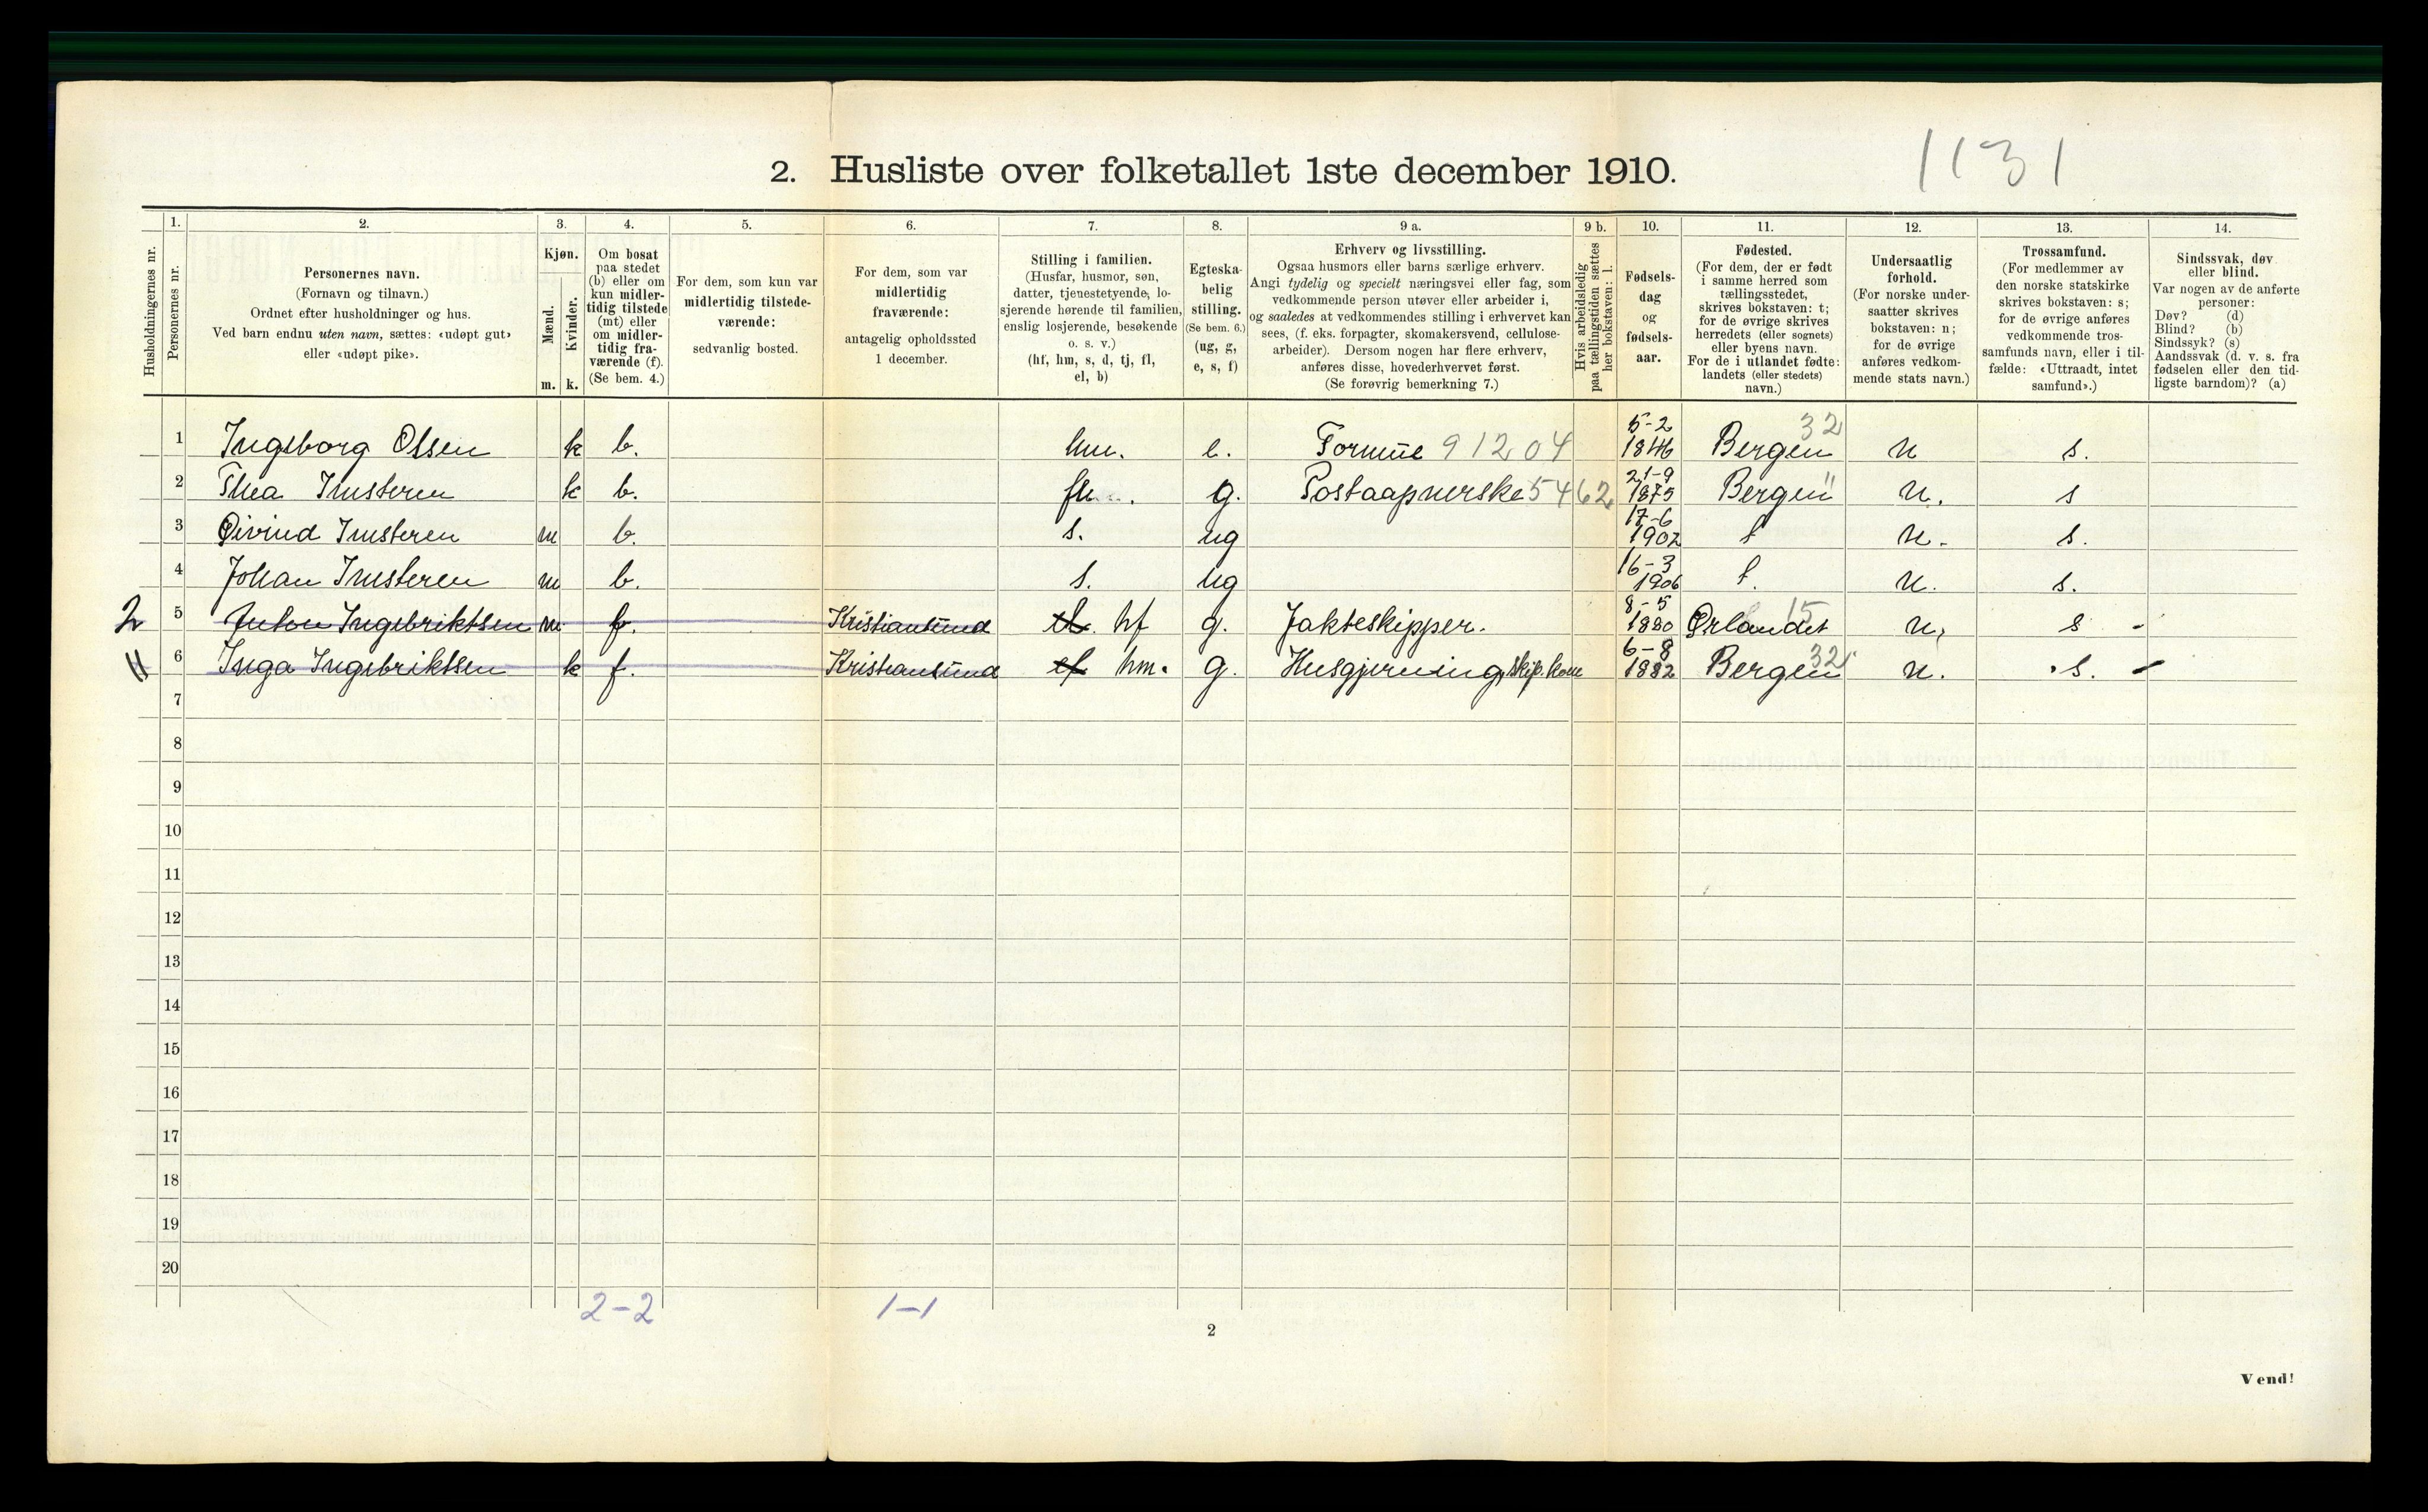 1131
2. Husliste over folketallet 1ste december 1910.
Husholdningernes nr.
1.
Personernes nr.
2.
Personernes navn.
(Fornavn og tilnavn.)
Ordnet efter husholdninger og hus.
Ved barn endnu uten navn, sættes: «udøpt gut»
eller «udøpt pike».
3.
Kjøn.
Mænd.
m.
Kvinder.
k.
4.
Om bosat
paa stedet
(b) eller om
kun midler-
tidig tilstede
(mt) eller
om midler-
tidig fra-
værende (f).
(Se bem. 4.)
5.
For dem, som kun var
midlertidig tilstede-
værende:
sedvanlig bosted.
6.
For dem, som var
midlertidig
fraværende:
antagelig opholdssted
1 december.
7.
Stilling i familien.
(Husfar, husmor, søn,
datter, tjenestetyende, lo-
sjerende hørende til familien,
enslig losjerende, besøkende
o. s. v.)
(hf, hm, s, d, tj, fl,
el, b)
8.
Egteska-
belig
stilling.
(Se bem. 6.)
(ug, g,
e, s, f)
9 a.
Erhverv og livsstilling.
Ogsaa husmors eller barns særlige erhverv.
Angi tydelig og specielt næringsvei eller fag, som
vedkommende person utøver eller arbeider i,
og saaledes at vedkommendes stilling i erhvervet kan
sees, (f. eks. forpagter, skomakersvend, cellulose-
arbeider). Dersom nogen har flere erhverv,
anføres disse, hovederhvervet først.
(Se forøvrig bemerkning 7.)
9 b.
Hvis arbeidsledig
paa tællingstiden sættes
her bokstaven: l.
10.
Fødsels-
dag
og
fødsels-
aar.
11.
Fødested.
(For dem, der er født
i samme herred som
tællingsstedet,
skrives bokstaven: t;
for de øvrige skrives
herredets (eller sognets)
eller byens navn.
For de i utlandet fødte:
landets (eller stedets)
navn.)
12.
Undersaatlig
forhold.
(For norske under-
saatter skrives
bokstaven: n;
for de øvrige
anføres vedkom-
mende stats navn.)
13.
Trossamfund.
(For medlemmer av
den norske statskirke
skrives bokstaven: s;
for de øvrige anføres
vedkommende tros-
samfunds navn, eller i til-
fælde: «Uttraadt, intet
samfund».)
14.
Sindssvak, døv
eller blind.
Var nogen av de anførte
personer:
Døv? (d)
Blind? (b)
Sindssyk? (s)
Aandssvak (d. v. s. fra
fødselen eller den tid-
ligste barndom)? (a)
1 Ingeborg Olsen k b. hm. e. Formue 91204 5-2 1846 Bergen 32 n s.
2 Thea Imsteren k b. fl. g. Postaapnerske 5462 21-9 1875 Bergen " n. s
3 Øivind Imsteren m b. s. ug 17-6 1902 t n. s.
4 Johan Imsteren m b. s. ug 16-3 1906 t. n. s.
2 5 Anton Ingebriktsen m. f. Kristiansund el. hf g. Jakteskipper. 8-5 1880 Ørlandet 15 n, s -
" 6 Inga Ingebriktsen k f. Kristiansund el hm. g. Husgjerning, skip. kone 6-8 1882 Bergen 32 n. s. -
7
8
9
10
11
12
13
14
15
16
17
18
19
20
2-2 1-1
2
Vend!